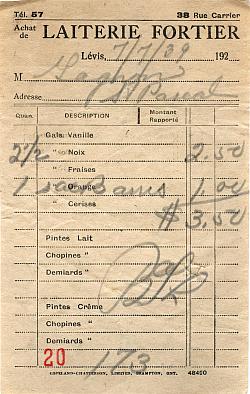 Tél. 57 38 Rue Carrier
Achat de LAITERIE FORTIER
Lévis, 7/7/39 192
M
Adresse St Pascal
Quan. DESCRIPTION Montant Rapporté
Gals. Vanille
2 1/2 " Noix 2.50
" Fraises
1 Bams " Orange 1.00
" Cerises $ 3.50
Pintes Lait
Chopines "
Demiards "
Pintes Crème
Chopines "
Demiards "
20 173
COPELAND-CHATTERSON, LIMITED, BRAMPTON, ONT. 48420